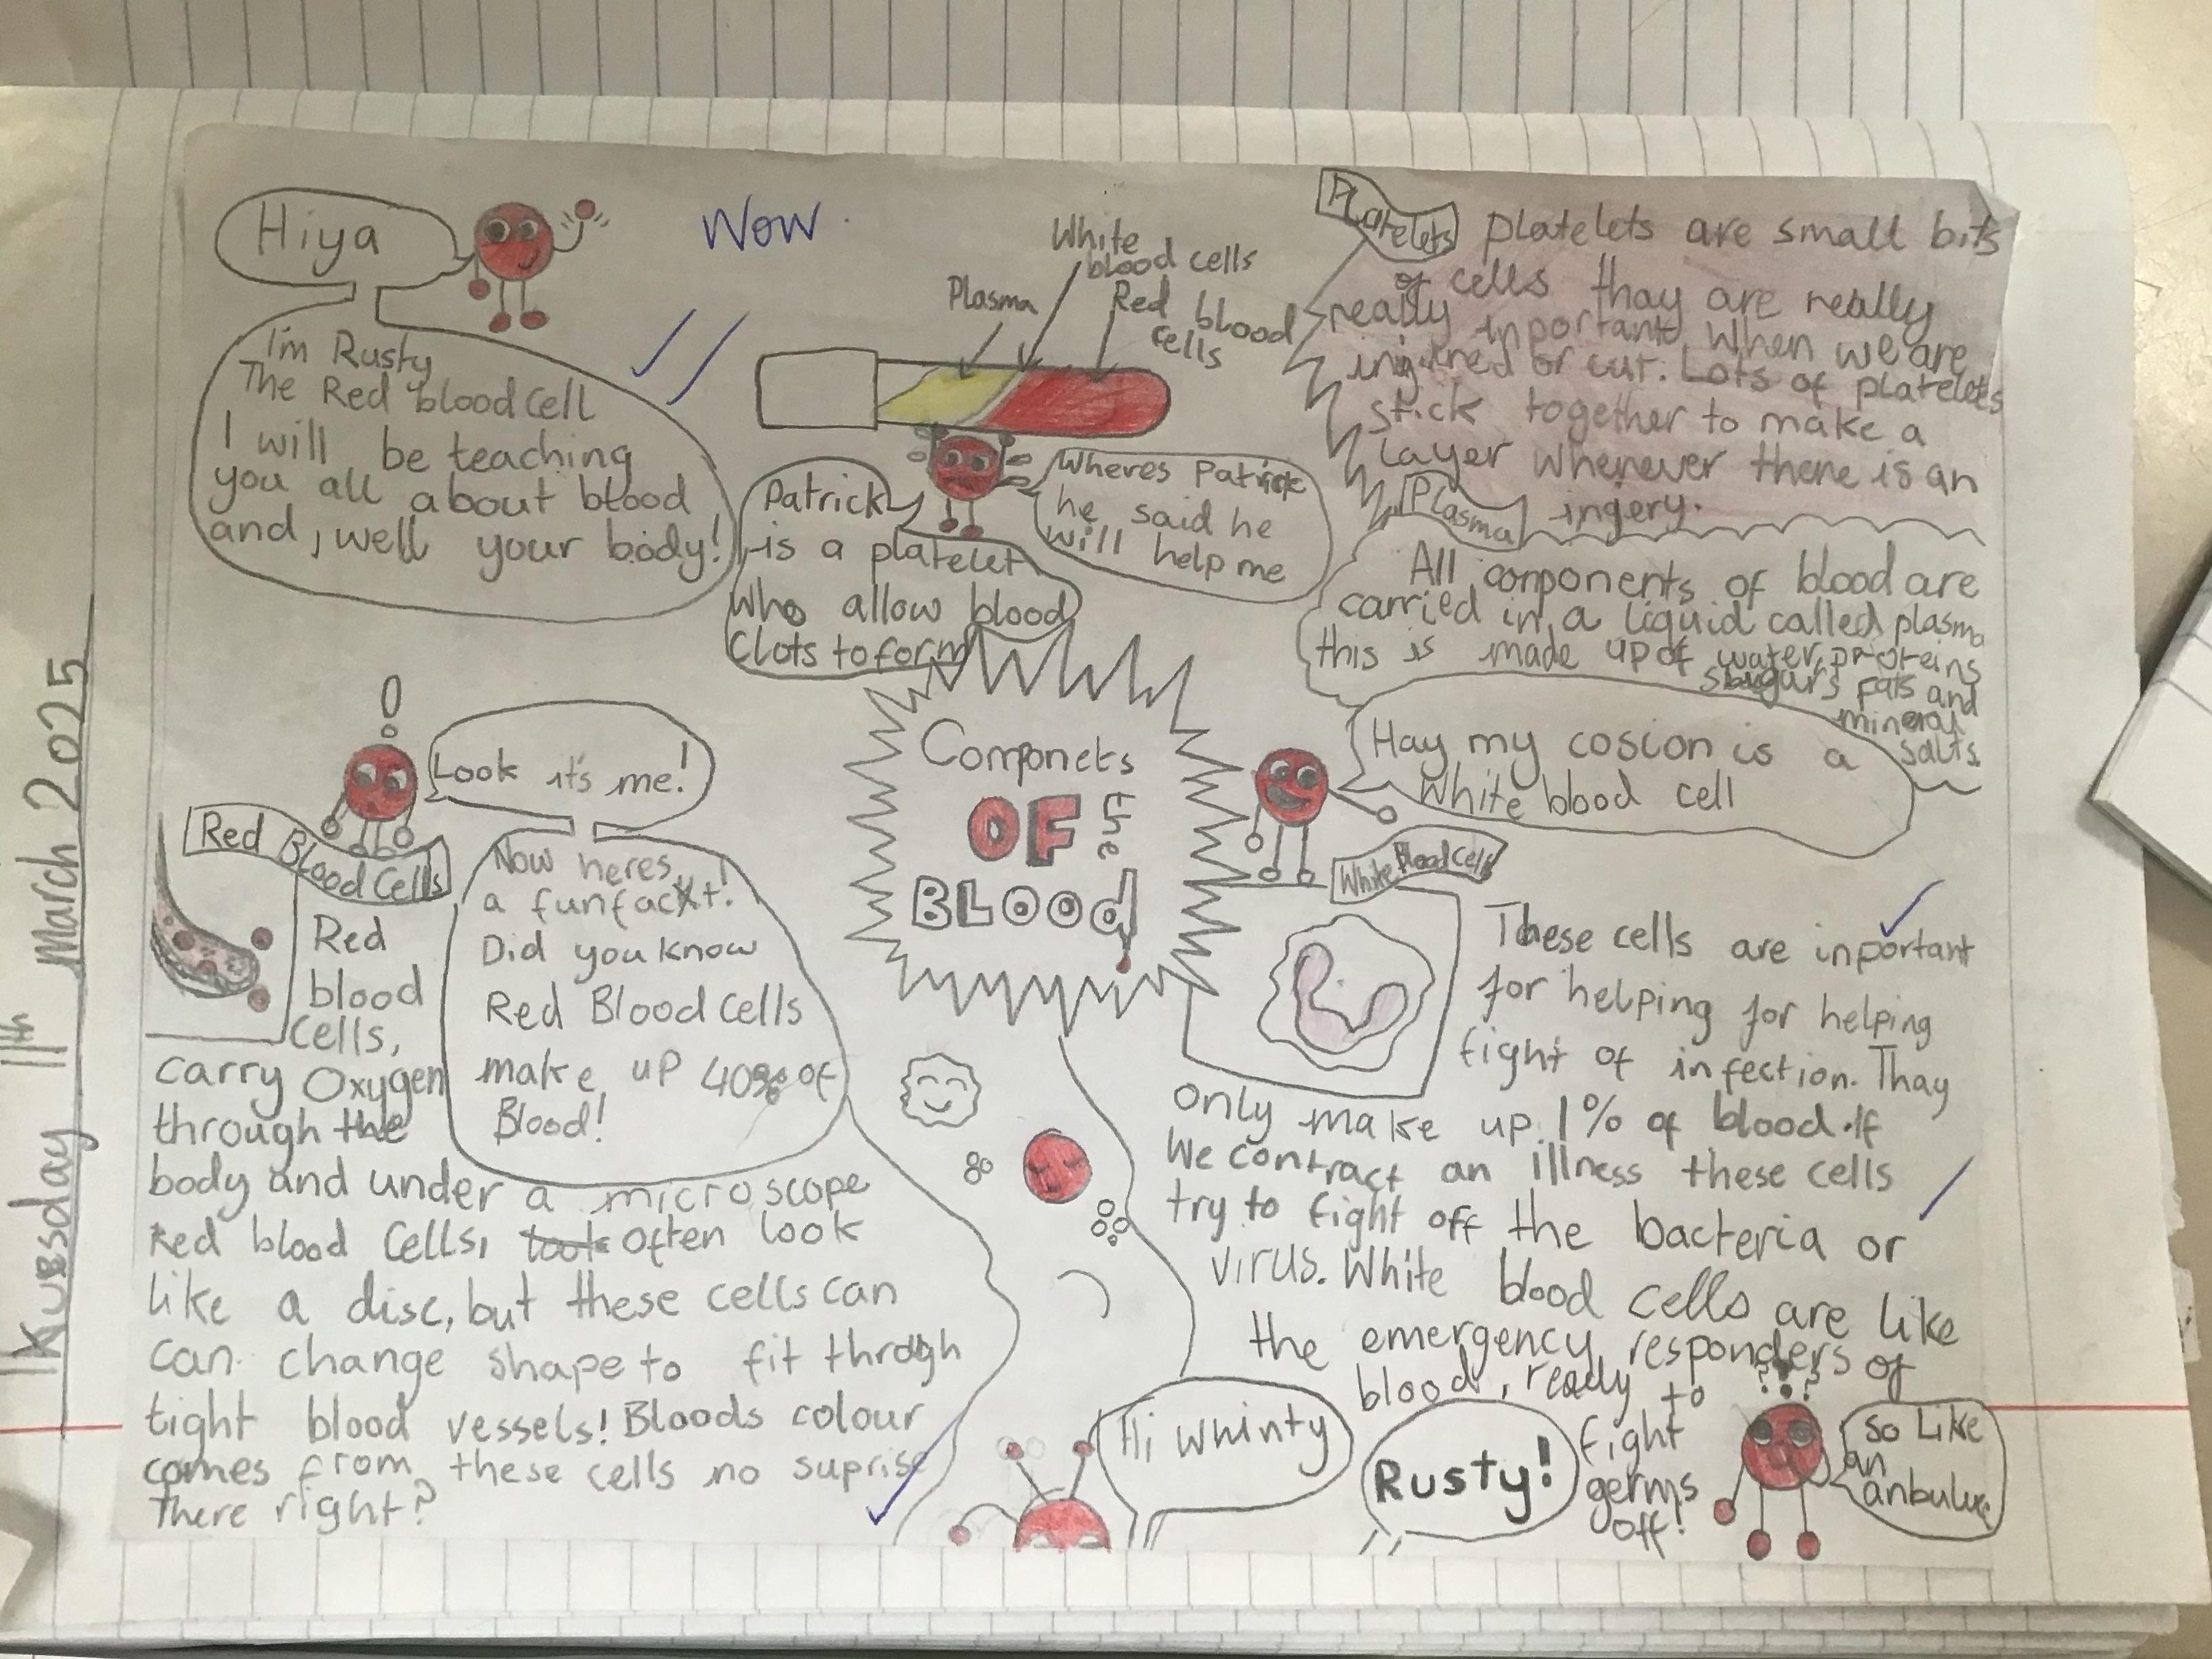 Hiya
I'm Rusty
The Red blood cell
I will be teaching
you all about blood
and, well your body!
Wow.
Plasma
White
blood cells
Red blood
cells
Patrick
is a platelet
who allow blood
clots to form
Wheres Patrick
he said he
will help me
Platelets
platelets are small bits
of cells thay are really
really inportant when we are
ingured or cut. Lots of platelets
stick together to make a
layer whenever there is an
ingery.
Plasma
All conponents of blood are
carried in a liquid called plasma
this is made up of water, proteins
sugars fats and
mineral
salts.
11th March 2025
Look it's me!
Red Blood Cells
Red
blood
cells,
carry Oxygen
through the
body and under a microscope
Red blood cells, often look
like a disc, but these cells can
can change shape to fit throgh
tight blood vessels! Bloods colour
comes from these cells no suprise
there right?
Now heres
a fun fact!
Did you know
Red Blood cells
make up 40% of
Blood!
Componets
OF the
BLOOd
Hay my coscion is a
White blood cell
White Blood Cells
These cells are inportant
for helping for helping
fight of infection. Thay
only make up 1% of blood. If
We contract an illness these cells
try to fight off the bacteria or
virus. White blood cells are like
the emergency responders of
blood, ready to
fight
germs
off!
Hi Whinty
Rusty!
???
so Like
an